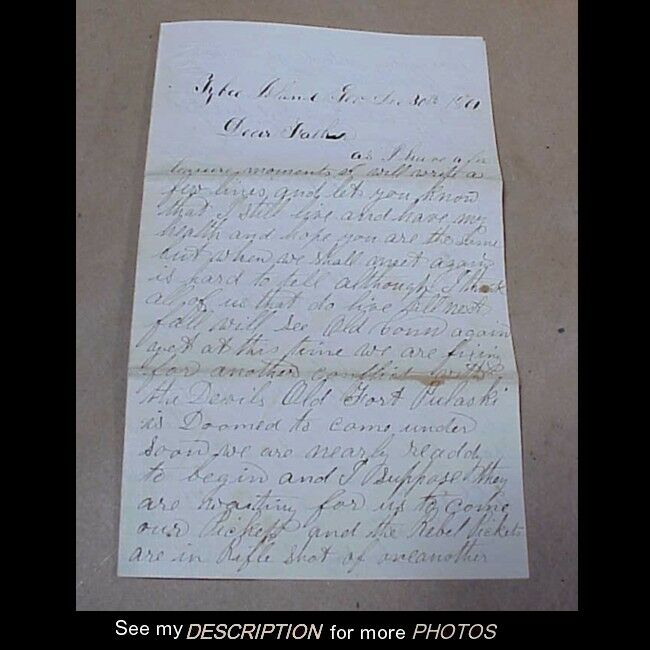 Tybee Island Geo Dec 30th 1861
Dear Father
as I have a few
leasure moments I will write a
few lines and let you know
that I still live and have my
health and hope you are the same
but when we shall meet again
is hard to tell although I think
all of us that do live till next
fall will see Old Conn again
yet at this time we are fixing
for another conflict with
the Devils Old Fort Pulaski
is Doomed to come under
soon we are nearly readdy
to begin and I suppose they
are waiting for us to come
our Picketts and the Rebel Pickets
are in Rifle shot of oneanother
See my DESCRIPTION for more PHOTOS